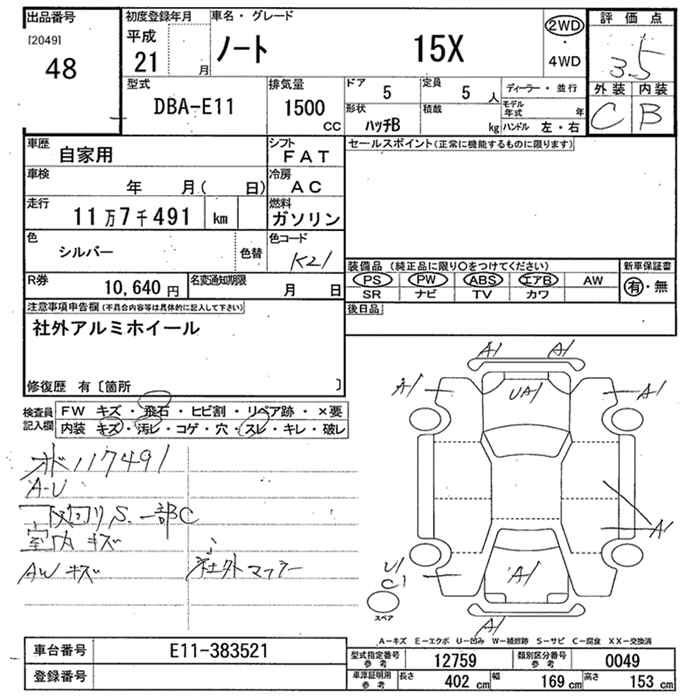 出品番号
[2049]
48
初度登録年月
平成
21
月
車名・グレード
ノート
15X
2WD
・
4WD
評価点
3.5
外装
内装
C
B
型式
DBA-E11
排気量
1500
CC
ドア
5
定員
5
人
形状
ハッチB
積載
kg
ディーラー・並行
モデル年式
年
ハンドル 左・右
車歴
自家用
シフト
FAT
車検
年 月( 日)
冷房
AC
走行
11万7千491
km
燃料
ガソリン
色
シルバー
色替
色コード
K21
R券
10,640 円
名変通知期限
月 日
セールスポイント(正常に機能するものに限ります)
装備品 (純正品に限り〇をつけてください)
PS
PW
ABS
エアB
AW
SR
ナビ
TV
カワ
新車保証書
有・無
後日品
注意事項申告欄(不具合内容等は具体的に記入して下さい)
社外アルミホイール
修復歴 有〔箇所 〕
検査員記入欄
FW キズ・飛石・ヒビ割・リペア跡・×要
内装 キズ・汚レ・コゲ・穴・スレ・キレ・破レ
オド117491
A-U
下回りS.一部C
室内キズ
AWキズ
社外マフラー
A1
A1
A1
UA1
A1
A1
U1
C1
A1
A1
スペア
A-キズ E-エクボ U-凹み W-補修跡 S-サビ C-腐食 XX-交換済
車台番号
E11-383521
登録番号
型式指定番号
参考
12759
類別区分番号
参考
0049
車庫証明用
参考
長さ
402 cm
幅
169 cm
高さ
153 cm